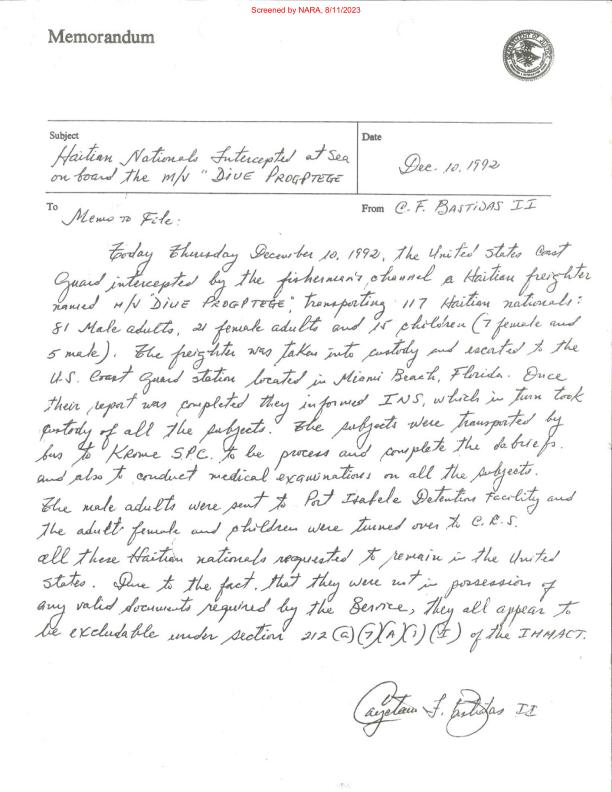 Screened by NARA, 8/11/2023
Memorandum
Subject
Date
Haitian Nationals Intercepted at Sea
on board the M/V "DIVE PROGPTEGE
Dec. 10, 1992
To
Memo to File:
From C. F. BASTIDAS II
Today Thursday December 10, 1992, the United States Coast
Guard intercepted by the fisherman's channel a Haitian freighter
named M/V "DIVE PROGPTEGE", transporting 117 Haitian nationals:
81 Male adults, 21 female adults and 15 children (7 female and
5 male). The freighter was taken into custody and escorted to the
U.S. Coast Guard Station located in Miami Beach, Florida. Once
their report was completed they informed INS, which in turn took
custody of all the subjects. The subjects were transported by
bus to Krome SPC. to be process and complete the debriefs.
and also to conduct medical examinations on all the subjects.
The male adults were sent to Port Isabele Detention Facility and
the adult female and children were turned over to C.R.S.
all these Haitian nationals requested to remain in the United
States. Due to the fact, that they were not in possession of
any valid documents required by the Service, they all appear to
be excludable under section 212(a)(7)(A)(i)(I) of the IMMACT.
Cayetano F. Bastidas II